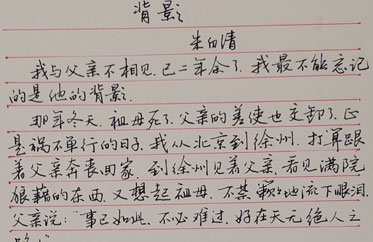 背影
朱自清
我与父亲不相见已二年余了，我最不能忘记
的是他的背影。
那年冬天，祖母死了，父亲的差使也交卸了，正
是祸不单行的日子，我从北京到徐州，打算跟
着父亲奔丧回家，到徐州见着父亲，看见满院
狼藉的东西，又想起祖母，不禁簌簌地流下眼泪。
父亲说：“事已如此，不必难过，好在天无绝人之